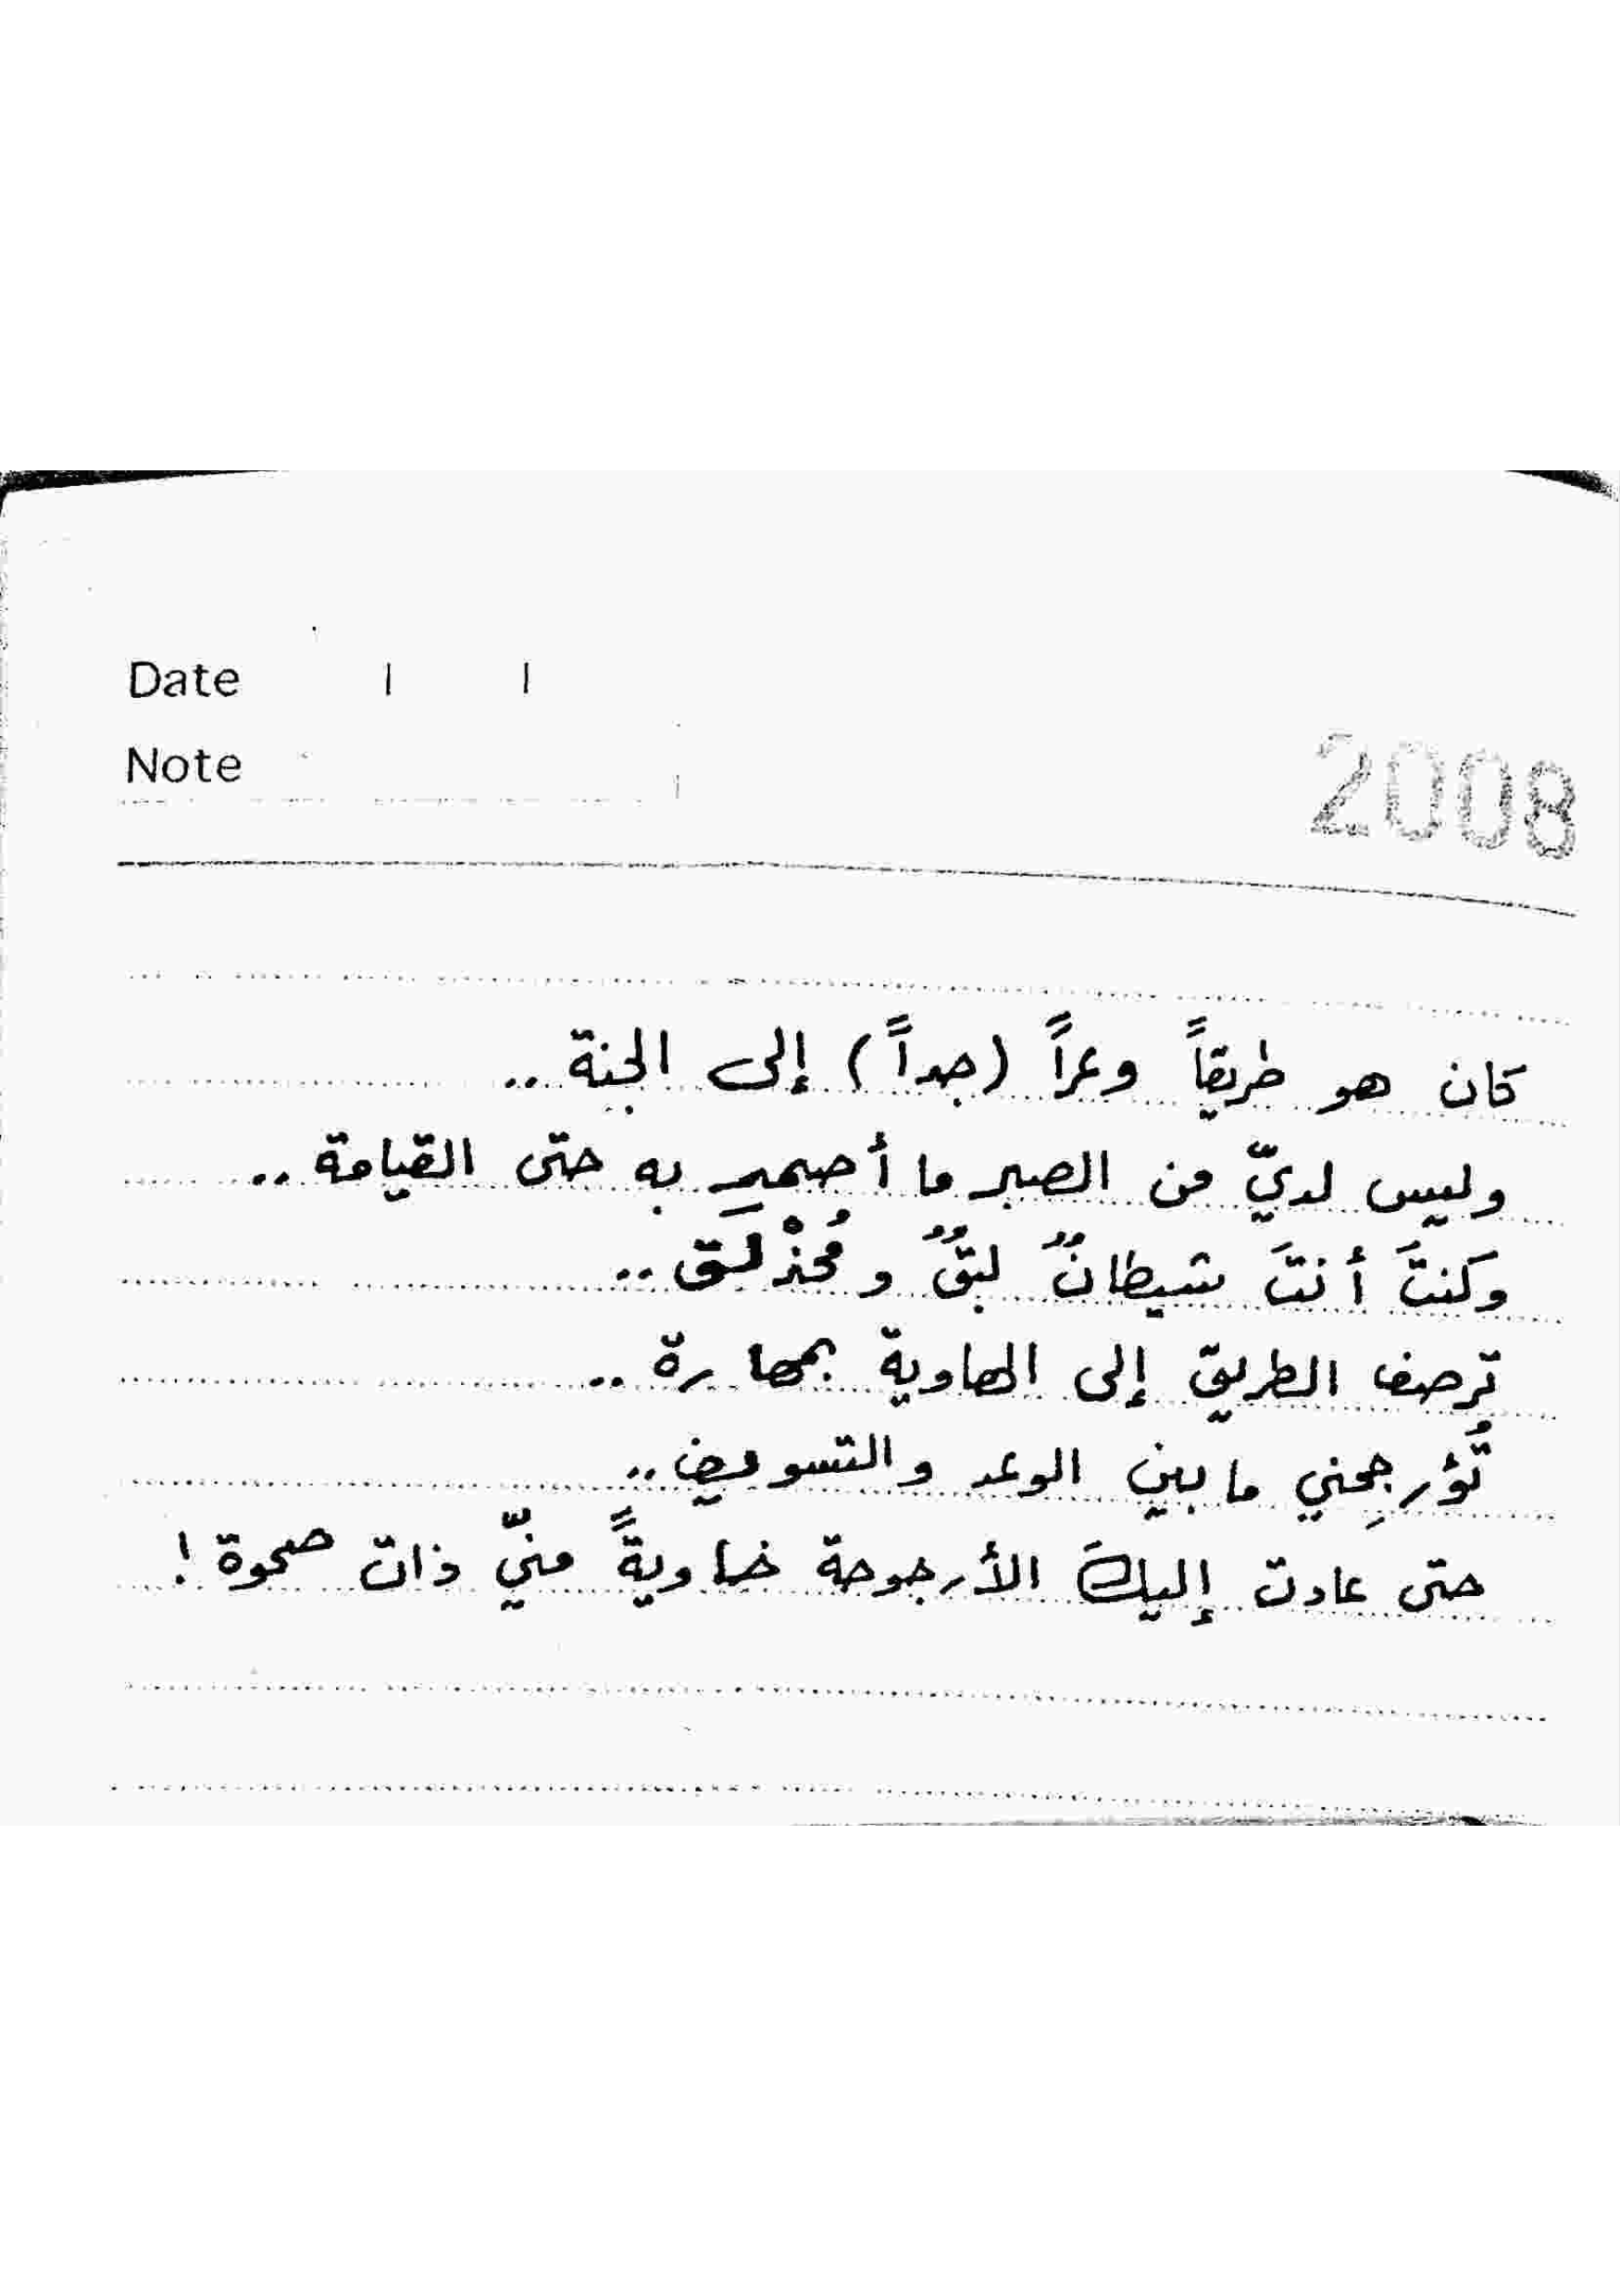 Date / /
Note
2008
كان هو طريقاً وعراً (جداً) إلى الجنة ..
وليس لديّ من الصبر ما أصمير به حتى القيامة ..
وكنتَ أنتَ شيطانٌ لبقٌ و مُحذْلَق ..
ترصف الطريق إلى الهاوية بمهارة ..
تُؤرجِحني ما بين الوعد والتسويف ..
حتى عادت إليكَ الأرجوحة خاويةً منيّ ذات صحوة !